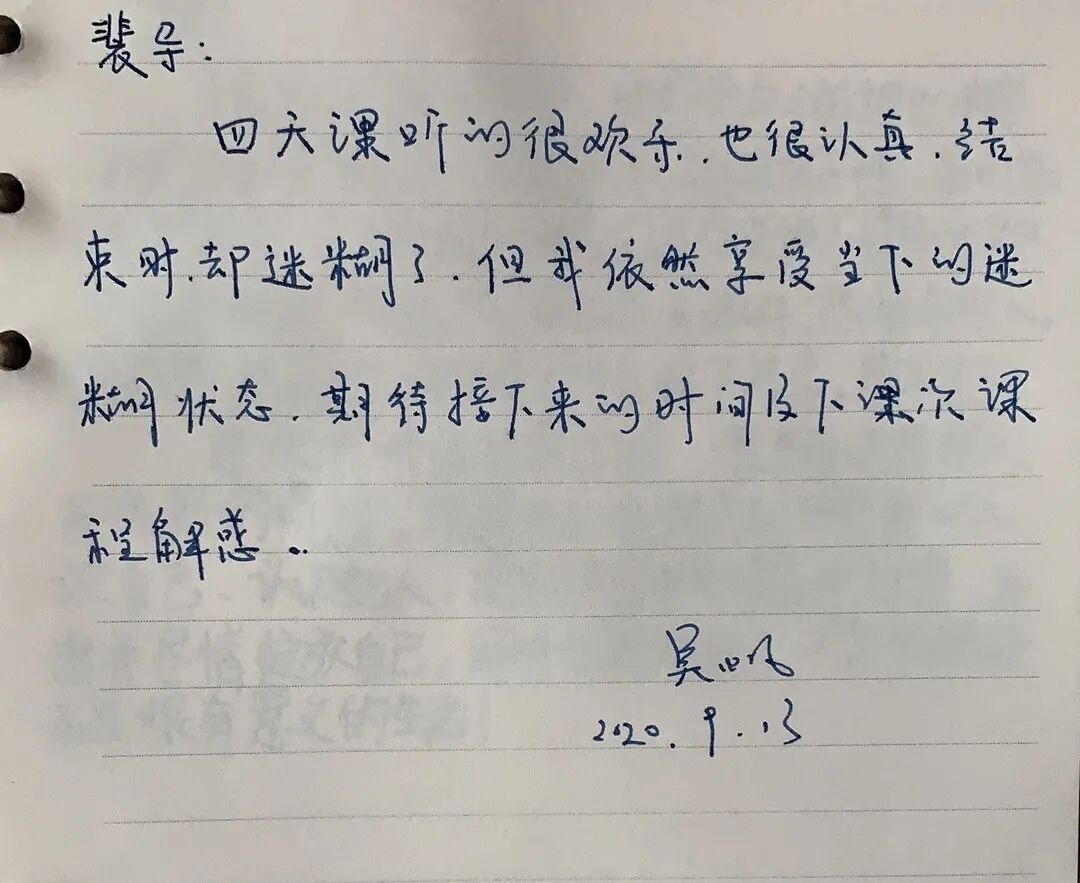 裴导:
四天课听的很欢乐,也很认真,结
束时,却迷糊了,但我依然享受当下的迷
糊状态,期待接下来的时间及下课次课
程解惑..
吴
2020.9.13